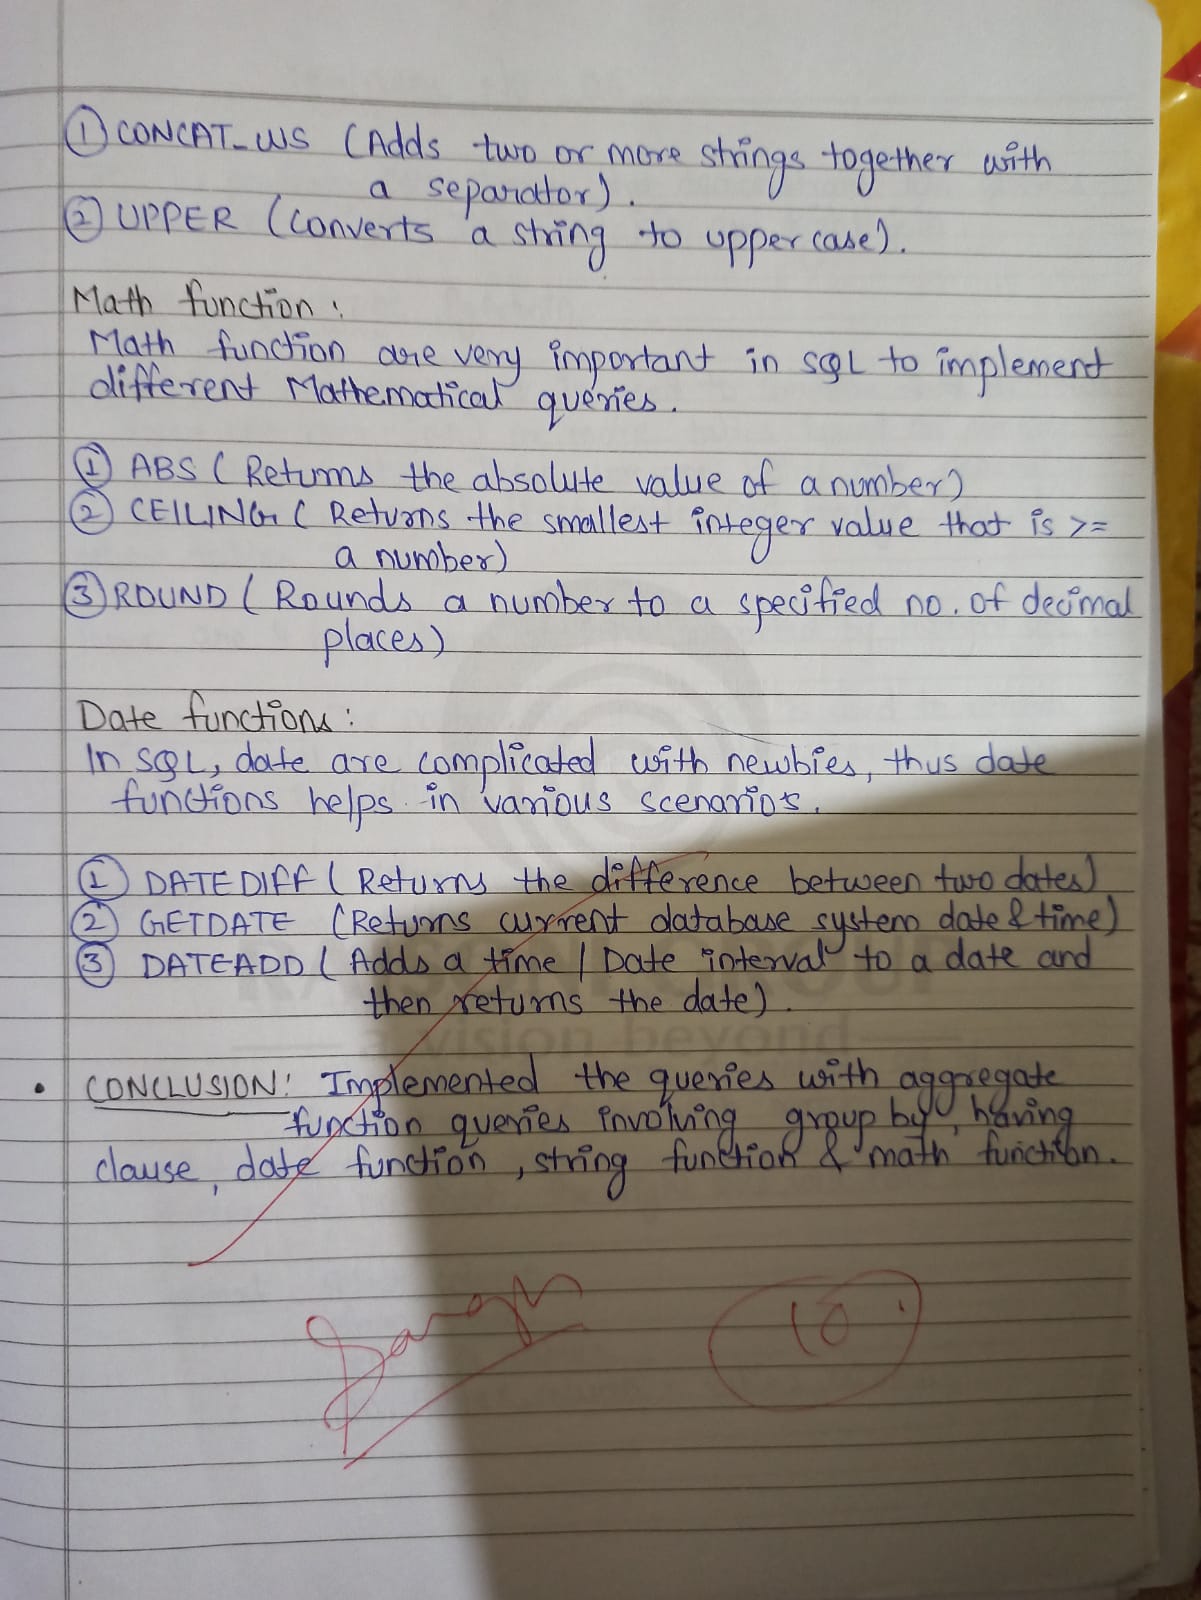 ① CONCAT_WS (Adds two or more strings together with
a separator).
② UPPER (Converts a string to upper case).
Math function:
Math function are very important in SQL to implement
different Mathematical queries.
① ABS (Returns the absolute value of a number)
② CEILING ( Returns the smallest integer value that is >=
a number)
③ ROUND ( Rounds a number to a specified no. of decimal
places)
Date functions:
In SQL, date are complicated with newbies, thus date
functions helps in various scenarios.
① DATEDIFF ( Returns the difference between two dates)
② GETDATE (Returns current database system date & time)
③ DATEADD ( Adds a time / Date interval to a date and
then returns the date).
• CONCLUSION: Implemented the queries with aggregate
function queries involving group by, having
clause, date function, string function & math function.
10